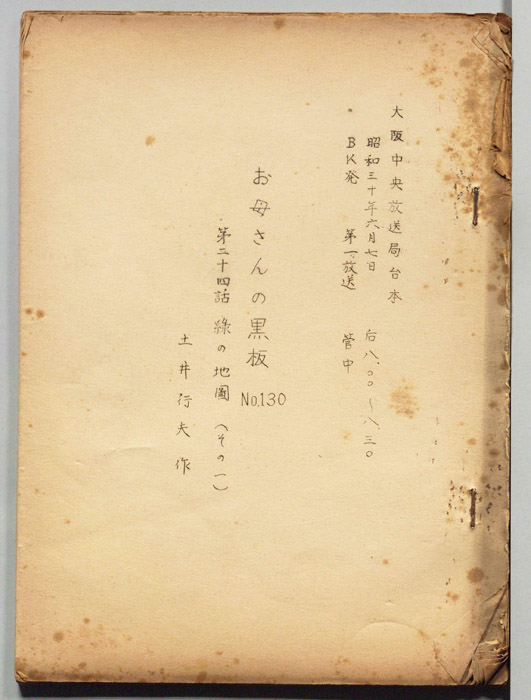 大阪中央放送局台本
昭和三十年六月七日 后八、〇〇〜八、三〇
BK発 第一放送 管中
お母さんの黒板 No.130
第二十四話 綠の地圖 (その一)
土井行夫作